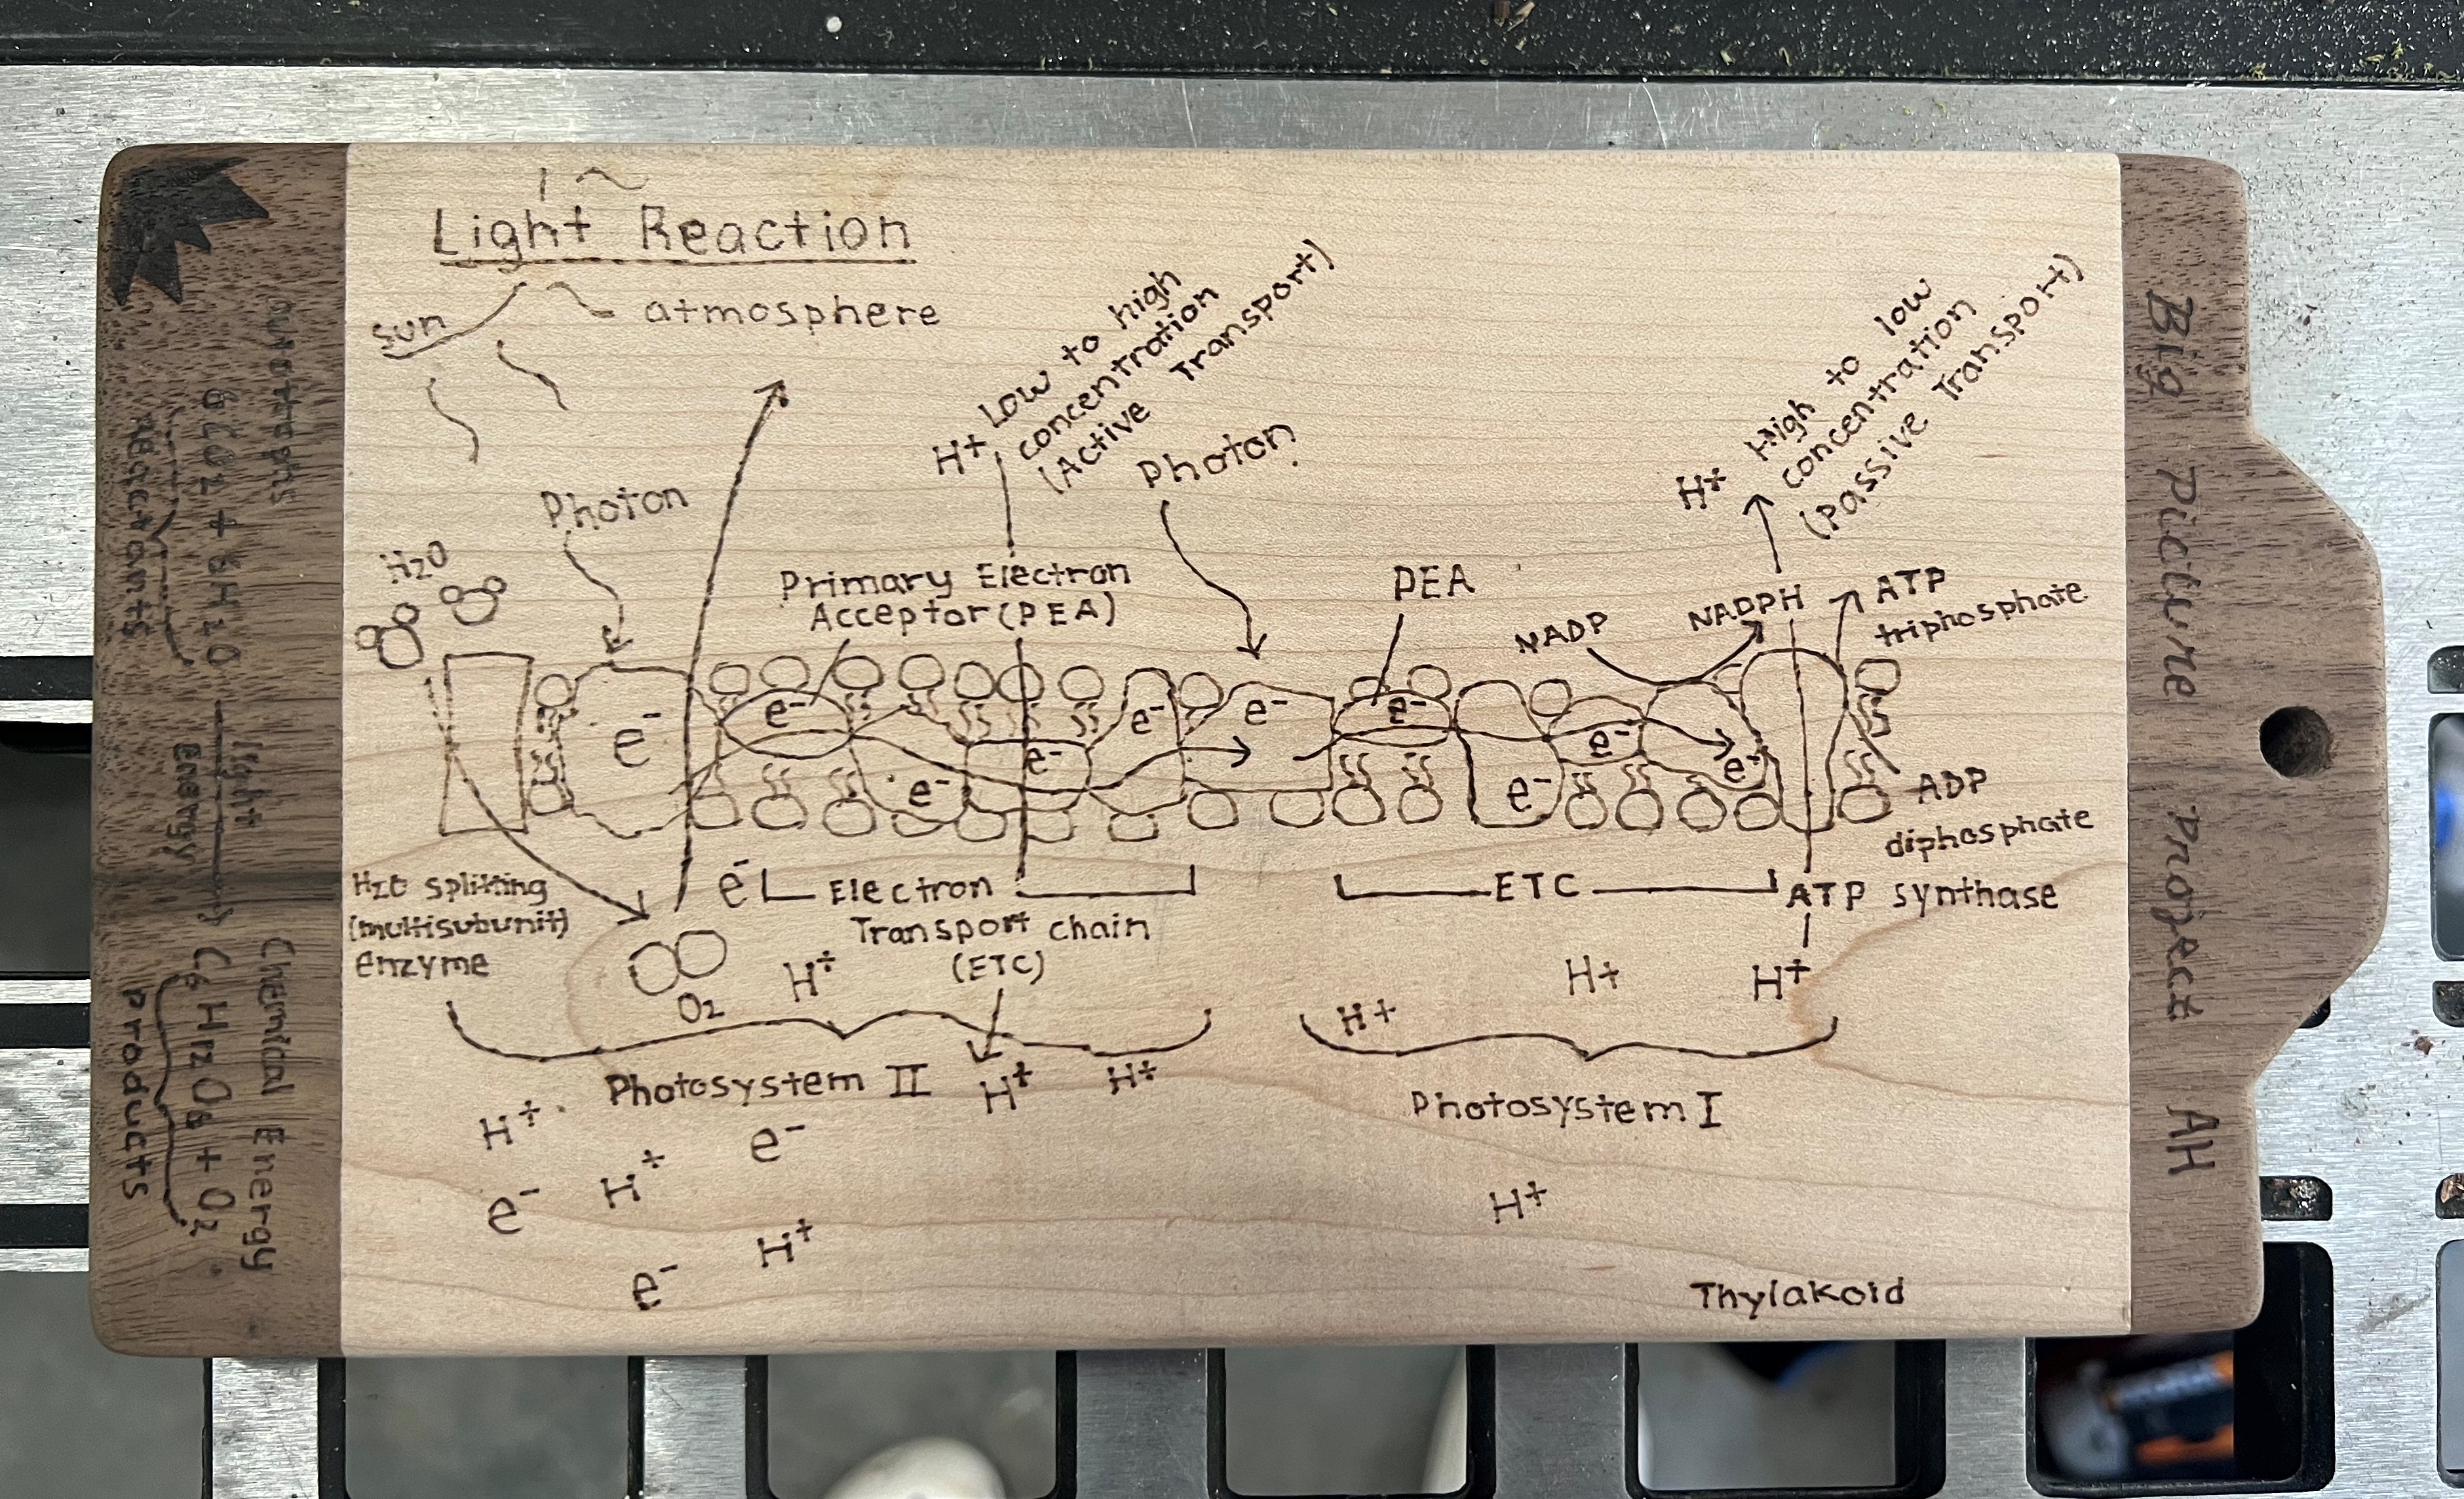 Light Reaction
sun
atmosphere
H+
Low to high
concentration
(Active Transport)
Photon
Photon
H+
High to low
concentration
(Passive Transport)
H2O
Primary Electron
Acceptor (PEA)
PEA
NADP
NADPH
ATP
triphosphate
e-
e-
e-
e-
e-
e-
e-
e-
e-
e-
ADP
diphosphate
H2O splitting
(multisubunit)
enzyme
e-
Electron
Transport chain
(ETC)
ETC
ATP synthase
O2
H+
H+
H+
H+
Photosystem II
H+
H+
Photosystem I
H+
e-
e-
H+
H+
H+
e-
Thylakoid
Autotrophs
light
energy
Chemical Energy
6CO2 + 6H2O → C6H12O6 + O2
Reactants
Products
Big Picture Project AH